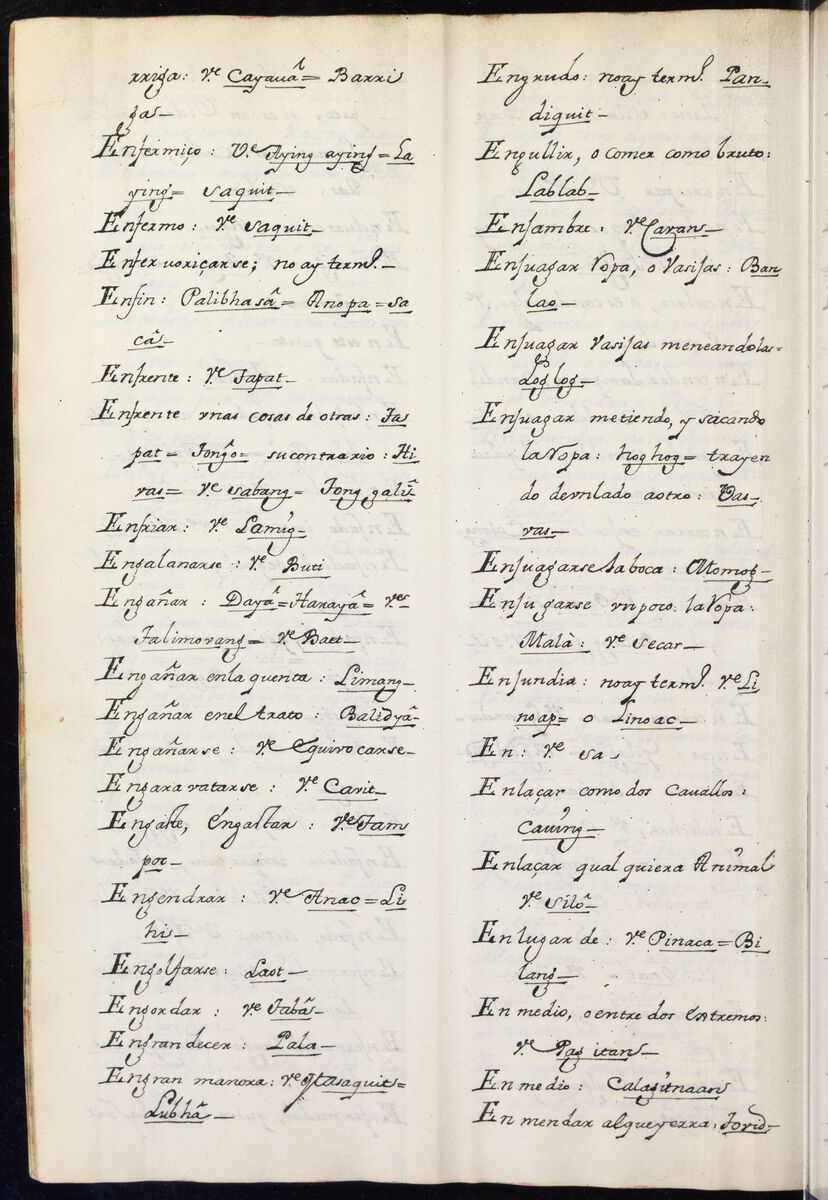 rriga: Vᵉ Cayauâ = Barri
ga —
Enfermiço: Vᵉ Aying aying = La
ying = saquit —
Enfermo: Vᵉ saquit —
Enfervoriçarse; no ay termº. —
Enfin: Palibhasâ = Anopa = sa
câ —
Enfrente: Vᵉ Tapat —
Enfrente vnas cosas de otras: Ta
pat = Tongô = su contrario: Hi
ras = Vᵉ sabang = Tong galiî
Enfriar: Vᵉ Lamig —
Engalanarse: Vᵉ Buti
Engañar: Dayâ = Harayâ = Vᵉˢ
Talimovang = Vᵉ Baet —
Engañar enla quenta: Limang —
Engañar enel trato: Balidyâ —
Engañarse: Vᵉ Equivocarse —
Engaravatarse: Vᵉ Cavit —
Engaste, Engastar: Vᵉ Tam
poc —
Engendrar: Vᵉ Anac = Li
his —
Engolfarse: Laot —
Engordar: Vᵉ Tabâ —
Engrandecer: Pala —
Engran manera: Vᵉ Masaquit =
Lubhâ —
Engrudo: no ay termº. Pan
diquit —
Engullir, o comer como bruto:
Lablab —
Enjambre: Vᵉ Cavan —
Enjuagar Ropa, o Vasijas: Ban
lao —
Enjuagar Vasijas meneandolas =
Log log —
Enjuagar metiendo, y sacando
la Ropa: hoghog = trayen
do devnlado aotro: Vas
vas —
Enjuagarse la boca: Momog —
Enjugarse vn poco la Ropa:
Malà: Vᵉ secar —
Enjundia: no ay termº. Vᵉ Li
noap = o Linoac —
En: Vᵉ sa —
Enlaçar como dos Cavallos:
Cauing —
Enlaçar qual quiera Animal
Vᵉ Silô —
Enlugar de: Vᵉ Pinaca = Bi
lang —
En medio, o entre dos extremos:
Vᵉ Pag itan —
En medio: Calagitnaan
Enmendar alqueyerra: Tovid —